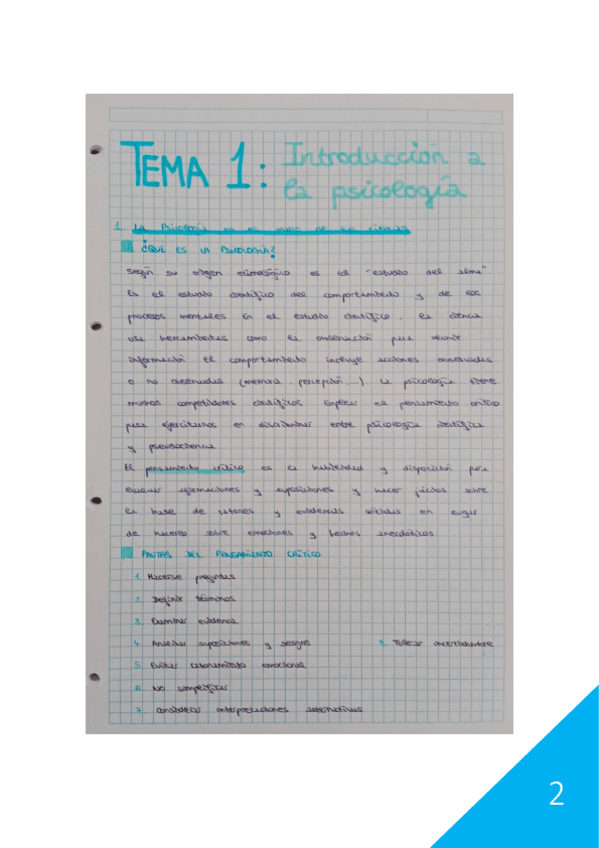 TEMA 1: Introducción a
la psicología
1. La Psicología en el marco de las ciencias
¿QUÉ ES LA PSICOLOGÍA?
Según su origen etimológico es el "estudio del alma"
Es el estudio científico del comportamiento y de los
procesos mentales. En el estudio científico, la ciencia
usa herramientas como la observación para reunir
información. El comportamiento incluye acciones observadas
o no observadas (memoria, percepción,...) La psicología tiene
muchos competidores científicos. Emplear el pensamiento crítico
para ejercitarnos en discriminar entre psicología científica
y pseudociencia
El pensamiento crítico es la habilidad y disposición para
evaluar afirmaciones y suposiciones y hacer juicios sobre
la base de razones y evidencias sólidas en lugar
de hacerlo sobre emociones y hechos anecdóticos.
PAUTAS DEL PENSAMIENTO CRÍTICO
1. Hacerse preguntas
2. Definir términos
3. Examinar evidencia
4. Analizar suposiciones y sesgos
8. Tolerar incertidumbre
5. Evitar razonamiento emocional
6. No simplificar
7. Considerar interpretaciones alternativas
2